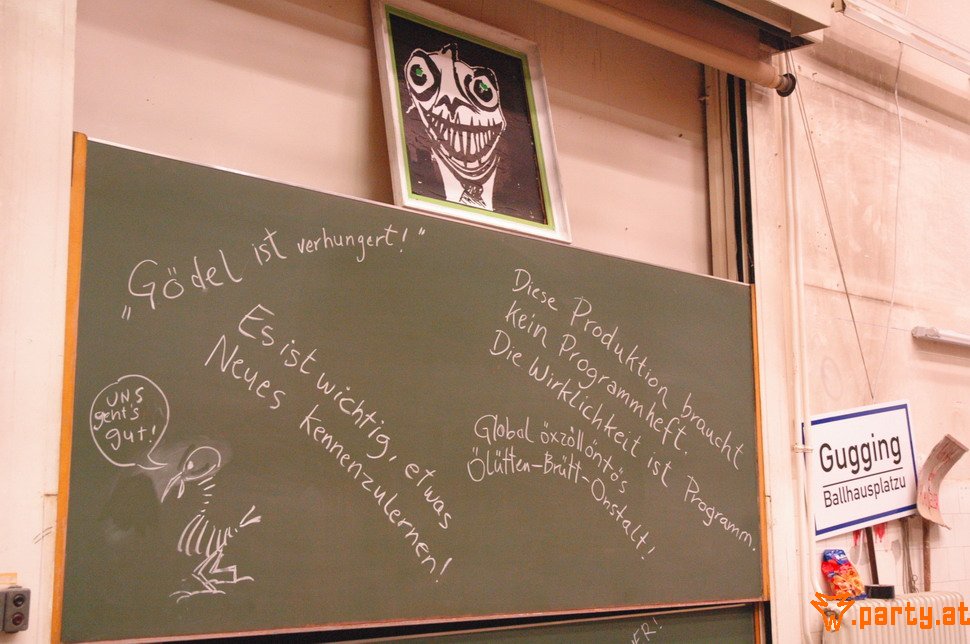 „Gödel ist verhungert!“
Es ist wichtig, etwas
Neues kennenzulernen!
UNS
geht's
gut!
Diese Produktion braucht
kein Programmheft.
Die Wirklichkeit ist Programm.
Global öxzöllöntös
Ölütten-Brütt-Onstalt!
Gugging
Ballhausplatzu
.party.at